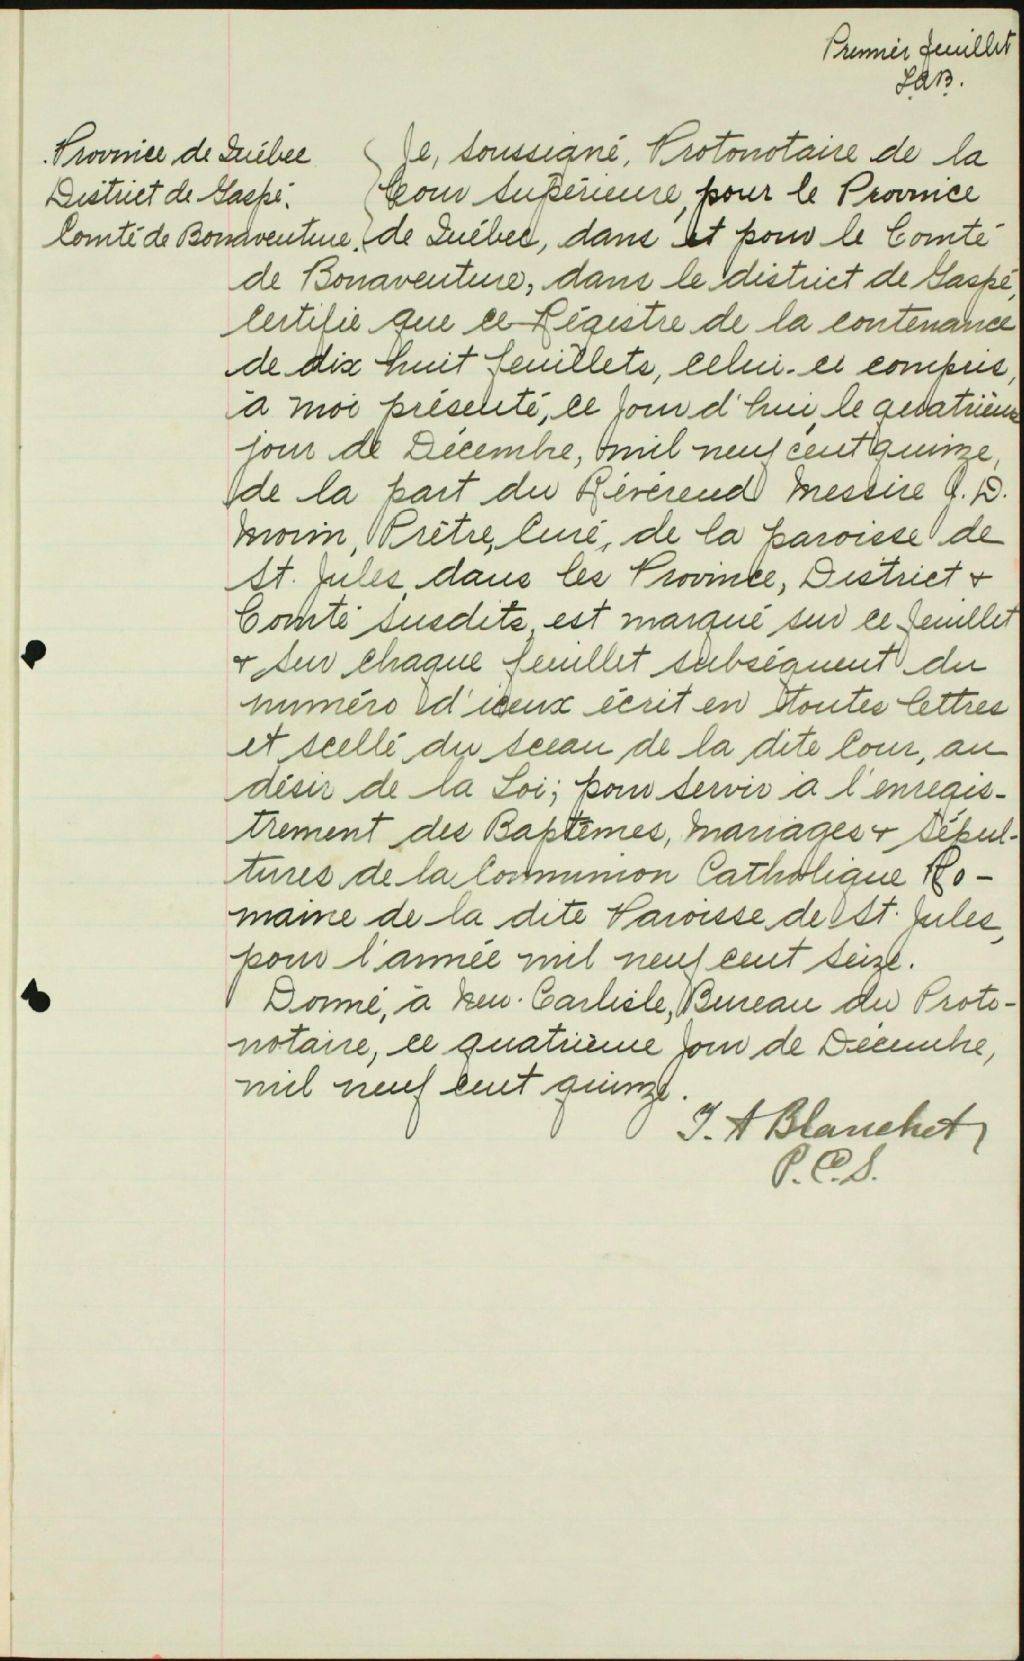 Premier feuillet
J.A.B.
Province de Québec
District de Gaspé.
Comté de Bonaventure.
Je, soussigné, Protonotaire de la
Cour Supérieure, pour le Province
de Québec, dans et pour le Comté
de Bonaventure, dans le district de Gaspé,
certifie que ce Régistre de la contenance
de dix huit feuillets, celui-ci compris,
à moi présenté, ce jour d'hui, le quatrième
jour de Décembre, mil neuf cent quinze,
de la part du Révérend Messire J. D.
Morin, Prêtre, Curé, de la paroisse de
St. Jules, dans les Province, District &
Comté susdits, est marqué sur ce feuillet
& sur chaque feuillet subséquent du
numéro d'iceux écrit en toutes lettres
et scellé du sceau de la dite Cour, au
désir de la Loi; pour servir à l'enregis-
trement des Baptêmes, Mariages & Sépul-
tures de la Communion Catholique Ro-
maine de la dite Paroisse de St. Jules,
pour l'année mil neuf cent seize.
Donné, à New-Carlisle, Bureau du Proto-
notaire, ce quatrième jour de Décembre,
mil neuf cent quinze.
J. A Blanchet
P.C.S.